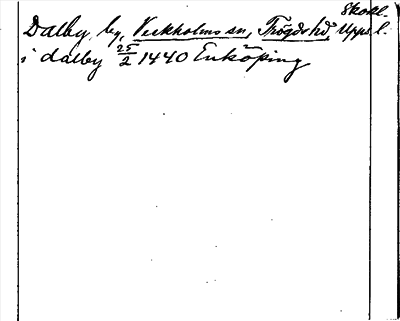 Skokl.
Dalby, by, Veckholms sn, Trögds hd, Upps l.
i dalby 25/2 1440 Enköping